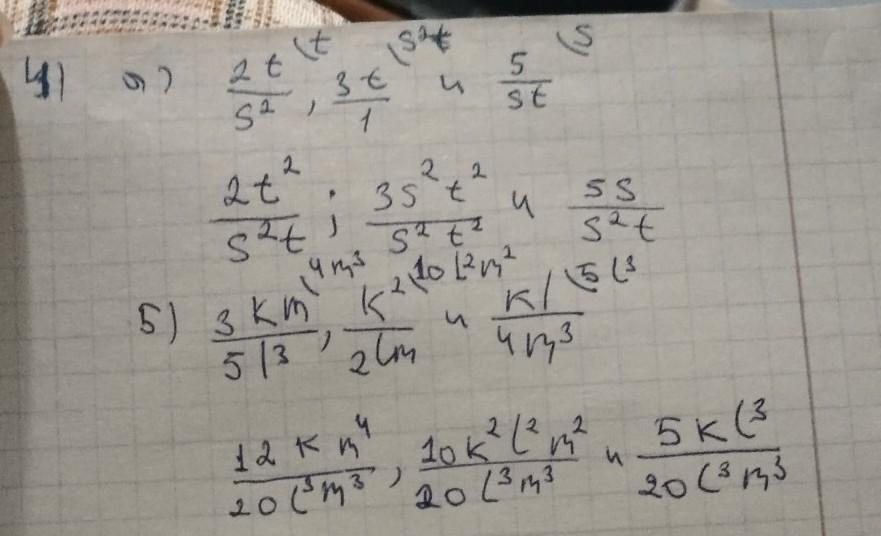 4) а) 2t/s² (t, 3t/1 (s²t и 5/st (s
2t²/s²t; 3s²t²/s²t² и 5s/s²t
б) 3km/5l³ (4m³, k²/2lm (10l²m² и kl/4m³ (5l³
12km⁴/20l³m³, 10k²l²m²/20l³m³ и 5kl³/20l³m³